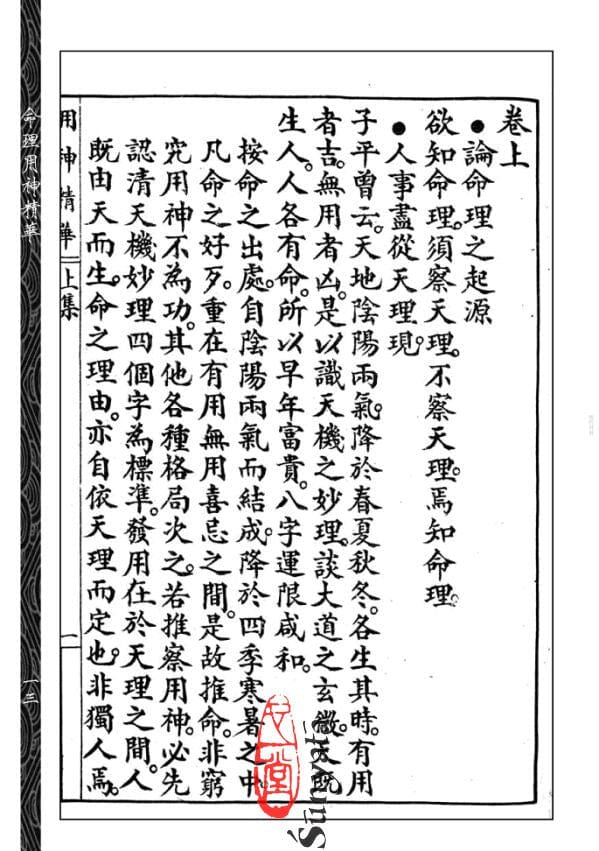 卷上
●論命理之起源
欲知命理。須察天理。不察天理。焉知命理。
●人事盡從天理現。
子平曾云。天地陰陽兩氣。降於春夏秋冬。各生其時。有用
者吉。無用者凶。是以識天機之妙理。談大道之玄微。天既
生人。人各有命。所以早年富貴。八字運限咸和。
按命之出處。自陰陽兩氣而結成。降於四季寒暑之中。
凡命之好歹。重在有用無用喜忌之間。是故推命。非窮
究用神不為功。其他各種格局次之。若推察用神。必先
認清天機妙理四個字為標準。發用在於天理之間。人
既由天而生。命之理由。亦自依天理而定也。非獨人焉。
用神精華 上集 一
命理用神精華
一三
心一堂
Śūnyatā